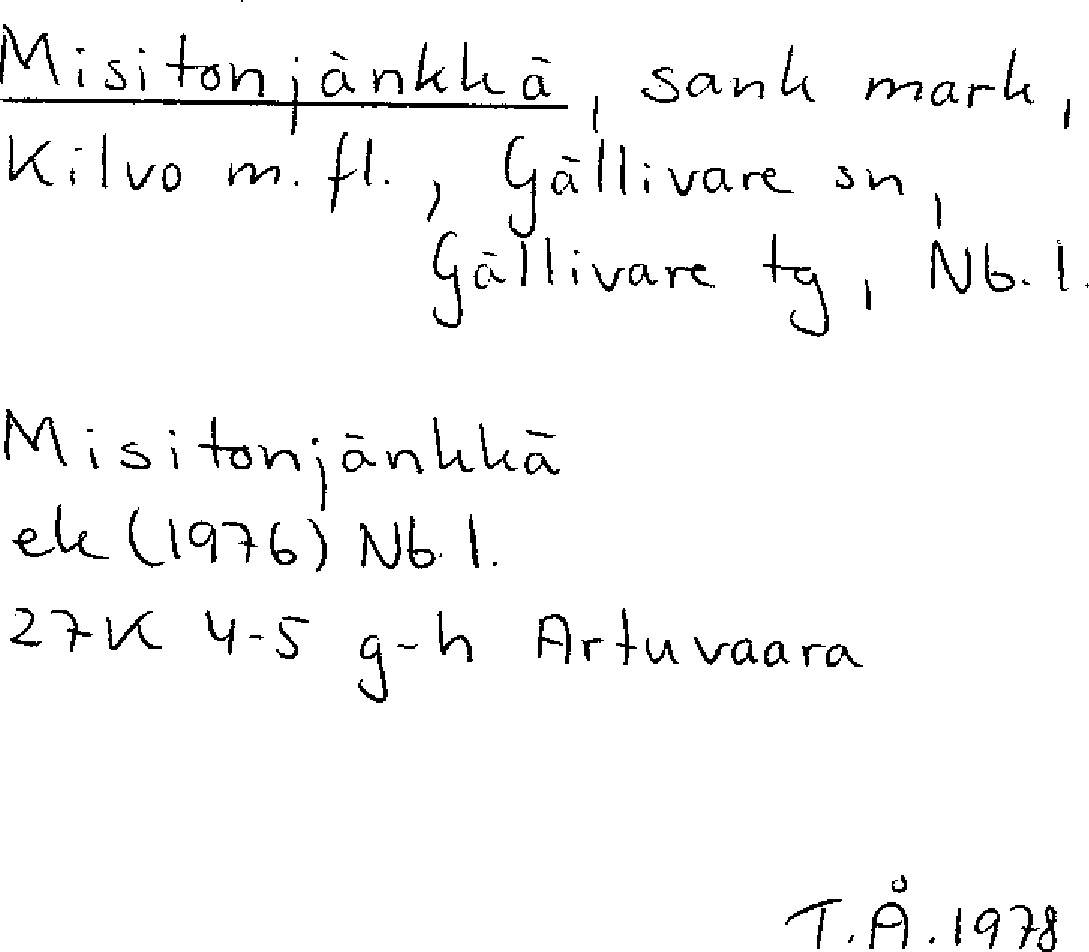 Misitonjänkkä, sank mark,
Kilvo m. fl., Gällivare sn,
Gällivare tg, Nb. l.
Misitonjänkkä
ek (1976) Nb. l.
27K 4-5 g-h Artuvaara
T.Å. 1978